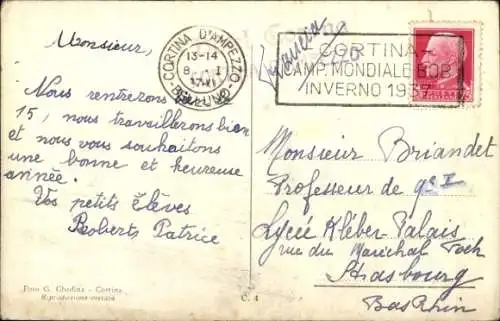 Monsieur,
Nous rentrerons
15, nous travaillerons bien
et nous vous souhaitons
une bonne et heureuse
année.
Vos petits élèves
Roberts Patrice
Foto G. Ghedina - Cortina
Riproduzione vietata
C. 4
CORTINA D'AMPEZZO
13-14
8 I
BELLUNO
CORTINA
CAMP. MONDIALE BOB
INVERNO 1937
Francia
Monsieur Briandet
Professeur de
Lycée Kléber-Palais
rue du Maréchal Foch
Strasbourg
Bas Rhin